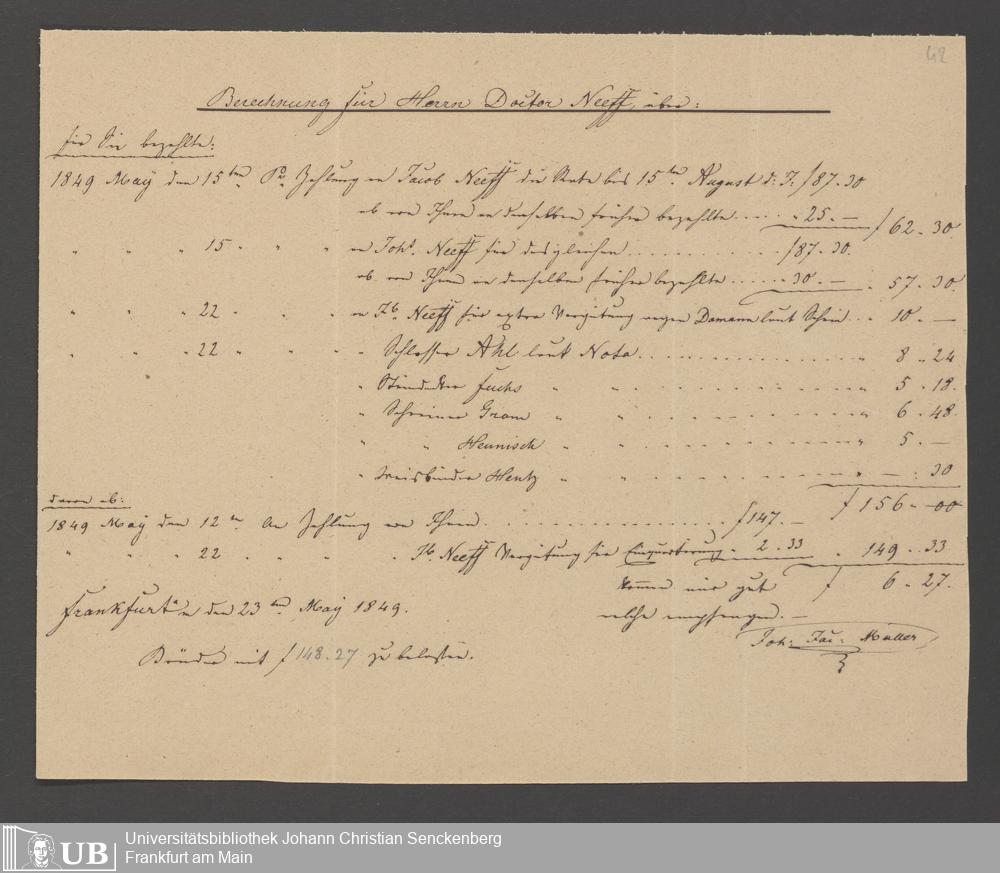 42
Berechnung für Herrn Doctor Neeff, über:
für Sie bezahlte:
1849 Maÿ den 15ten Po. Zahlung an Jacob Neeff die Rate bis 15ten August d: J: f 87.30
ab von Ihnen an denselben früher bezahlte..... " 25.— f 62.30
" " " 15 " " " an Johs. Neeff für desgleichen............ f 87.30.
ab von Ihnen an denselben früher bezahlte...... 30.— " 57.30.
" " " 22 " " " an Jb. Neeff für extra Vergütung wegen laut Schein... " 10.—
" " " 22 " " " " Schlosser Ahl laut Nota................ " 8.24
" Fuchs " " ................ " 5.18.
" Schreiner Gram " " ................ " 6.48.
" " Heunisch " " ................ " 5.—
" Weisbinder Hentz " " ................ " —.30
davon ab:
f 156.—00
1849 Maÿ den 12ten An Zahlung von Ihnen.................... f 147.—
" " " 22 " " " " Jb. Neeff Vergütung für Einquartierung " 2.33 " 149..33
kommen mir gut f 6.27.
Frankfurt a/m den 23ten Maÿ 1849.
welche empfangen.—
Joh: Jac: Müller
mit f 148.27 zu belasten.
UB
Universitätsbibliothek Johann Christian Senckenberg
Frankfurt am Main